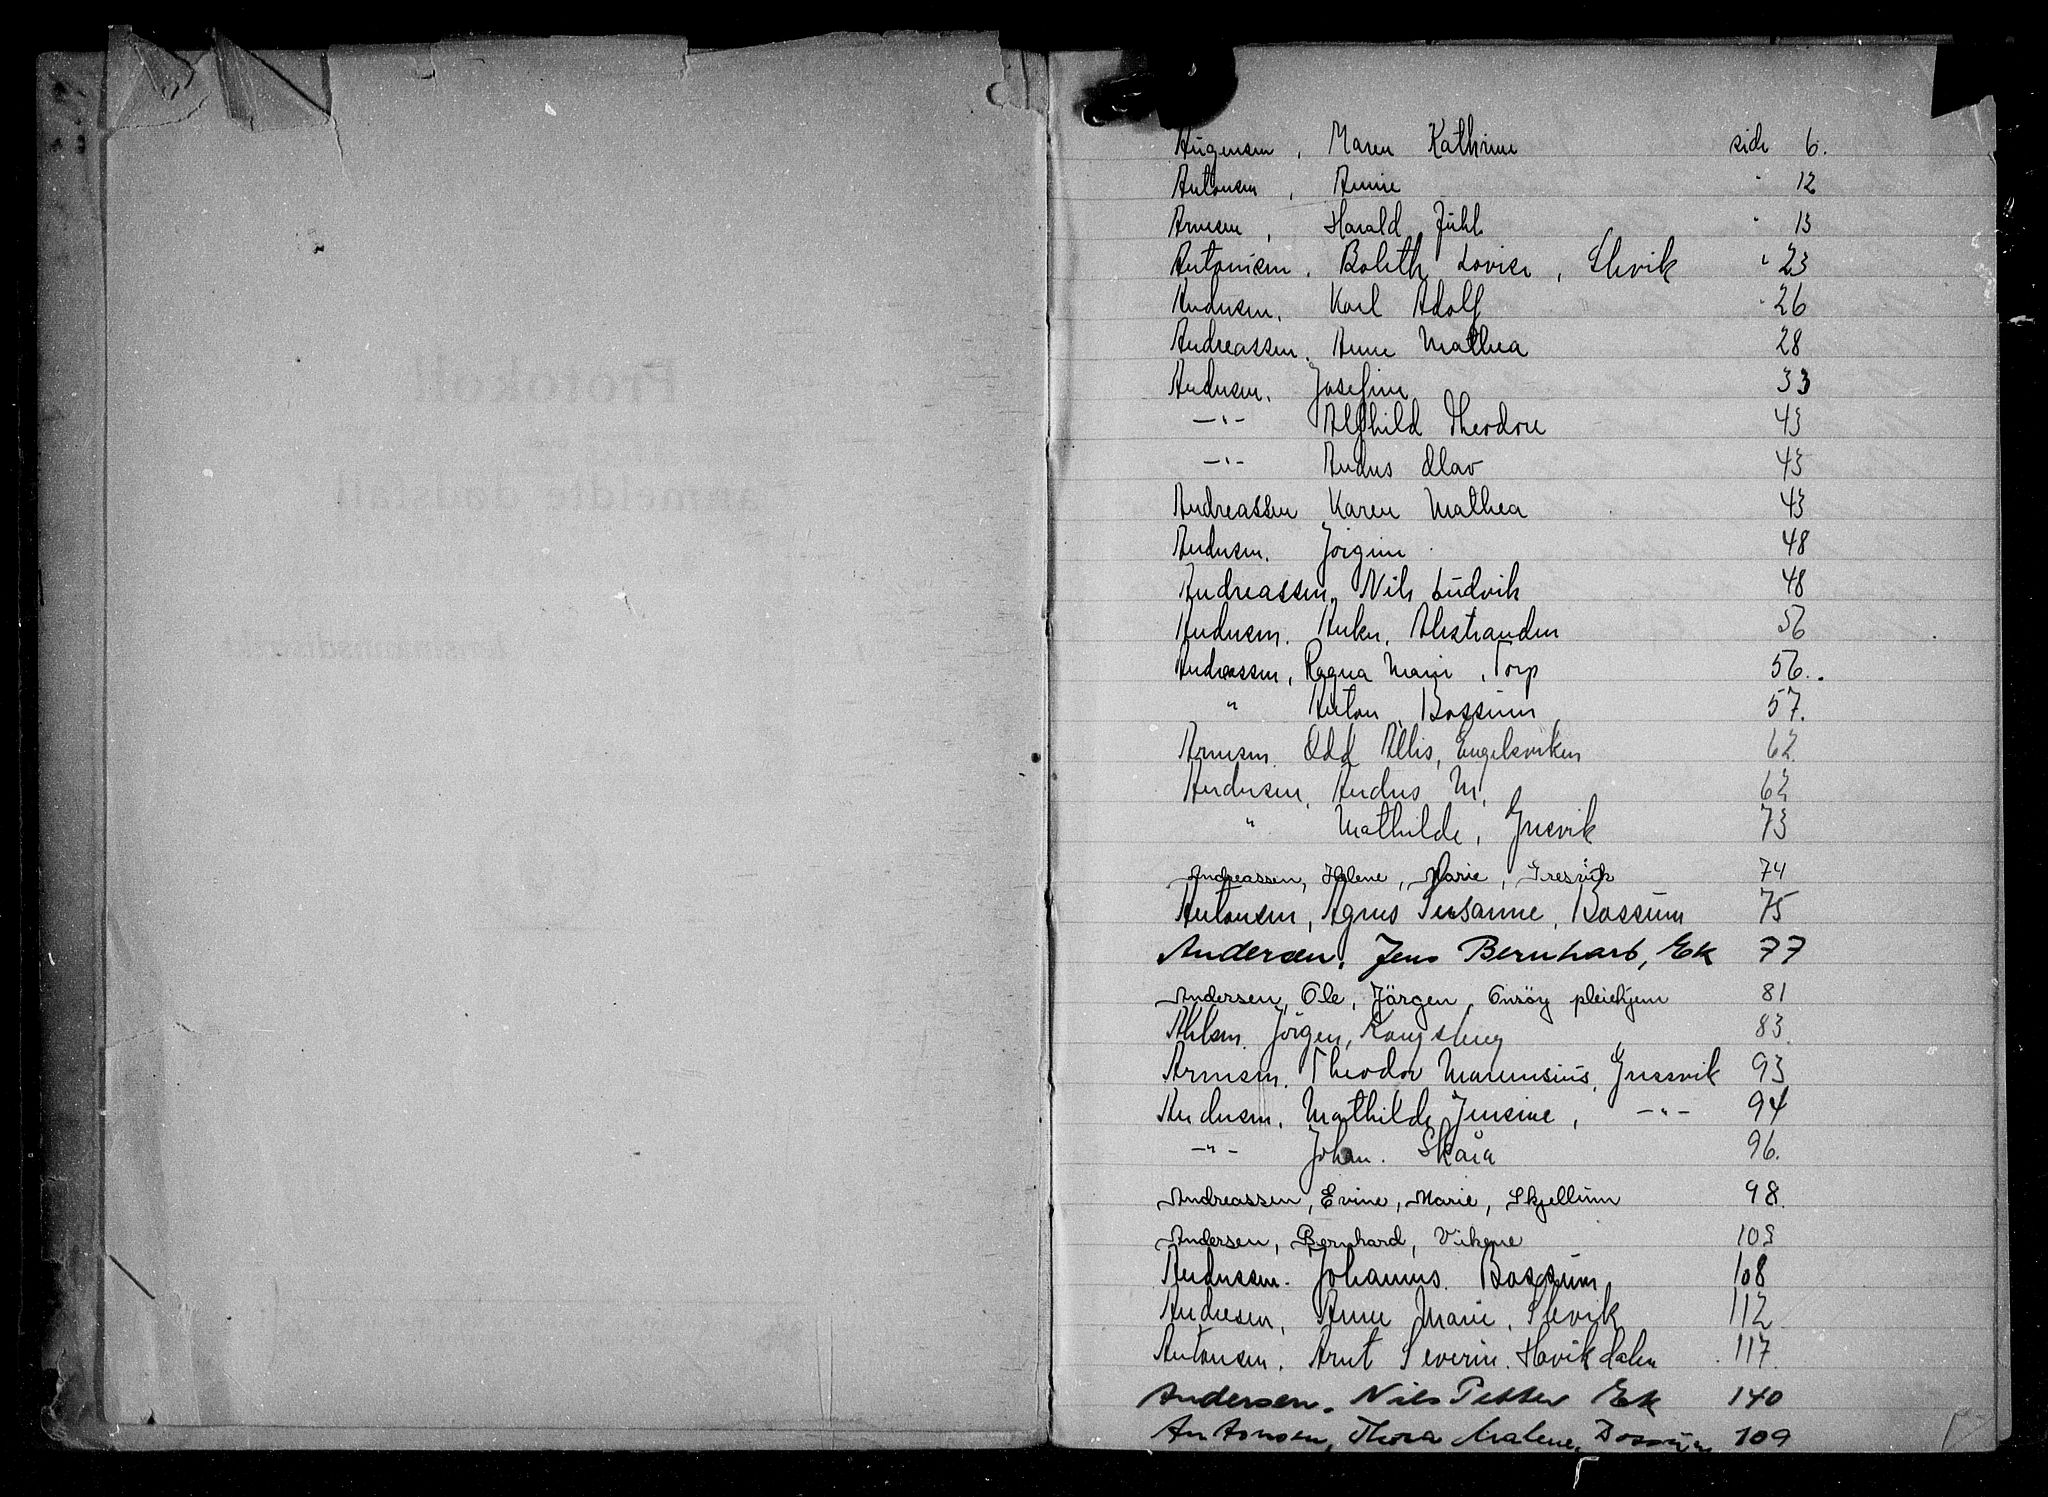 Augensen, Maren Kathrine side 6.
Antonsen, Annie " 12
Arnesen, Harald Juhl " 13
Antonisen, Boleth Lovise, Slevik " 23
Andersen, Karl Adolf " 26
Andreassen, Anne Mathea 28
Andersen, Josefine 33
—"— Alfhild Theodore 43
—"— Anders Olav 43
Andreassen Karen Mathea 43
Andersen, Jørgine 48
Andreassen, Nils Ludvik 48
Andersen, Anker, Ahlstranden 56
Andreassen, Ragna Marie, Torp 56.
" Anton, Bossum 57.
Arnesen, Odd Allis, Engelsviken 62
Andersen, Anders M. 62
" Mathilde, Gresvik 73
Andreassen, Helene, Marie, Gresvik 74
Antonsen, Agnes Susanne, Bossum 75
Andersen, Jens Bernhard, Ek 77
Andersen, Ole, Jörgen, Onsöy pleiehjem 81
Ahlsen, Jörgen, Kongsberg 83.
Arnesen, Theodor Marensius, Gressvik 93
Andersen, Mathilde Jensine, —"— 94
—"— Johan. Skåra 96.
Andreassen, Evine, Marie, Skjellum 98.
Andersen, Bernhard, Vikene 103
Anderssen. Johannes. Bossum 108
Andresen, Anne Marie, Slevik 112
Antonsen, Arnt Severin. Havikdalen 117.
Andersen, Nils Petter Ek 140
Antonsen, Thora Malene, Bossum 109